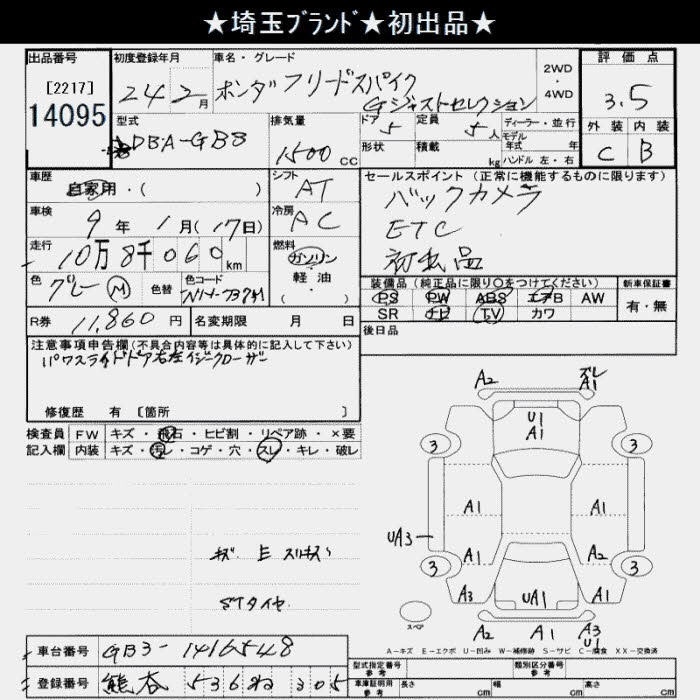 ★埼玉ﾌﾞﾗﾝﾄﾞ★初出品★
出品番号
[2217]
14095
初度登録年月
24 2月
車名・グレード
ホンダ フリードスパイク
Gジャストセレクション
2WD
・
4WD
評価点
3.5
外装 内装
C B
型式
DBA-GB3
排気量
1500 CC
ドア 5
定員 5人
ディーラー・並行
モデル
年式 年
形状
積載 kg
ハンドル 左・右
車歴
自家用・( )
シフト
AT
セールスポイント (正常に機能するものに限ります)
バックカメラ
ETC
初出品
車検
9年 1月(17日)
冷房
AC
走行
10万8千060km
燃料
ガソリン
・
軽油
・
( )
色
グレー Ⓜ
色替
色コード
NH-737M
装備品 (純正品に限り○をつけてください)
PS PW ABS エアB AW
SR ナビ TV カワ
新車保証書
有・無
R券 11,860円
名変期限 月 日
後日品
注意事項申告欄(不具合内容等は具体的に記入して下さい)
パワスライドドア右左イージークローザー
修復歴 有 [箇所 ]
検査員
記入欄
FW キズ・飛石・ヒビ割・リペア跡・×要
内装 キズ・汚レ・コゲ・穴・スレ・キレ・破レ
スリキズ
タイヤ
A2
ズレ
A1
U1
A1
3 3
A1 A1
UA3
A1 A2
3 3
A3 UA1 A1
A2 A1 A3
U1
スペア
A-キズ E-エクボ U-凹み W-補修跡 S-サビ C-腐食 XX-交換済
車台番号
GB3-1416548
登録番号
熊谷 536 305
型式指定番号
参考
類別区分番号
参考
車庫証明用
参考
長さ cm
幅 cm
高さ cm